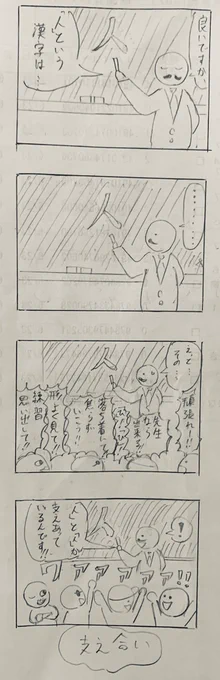 良いですか
「人」という
漢字は…
人
………
人
えっと…
その…
頑張れー!!
先生
なら
出来る!!
落ち着いて!!
焦らず
いこう!!
形を見て!!
練習
思い出して!!
人
!
人と人が
支えあって
いるんです!!
!!
支え合い